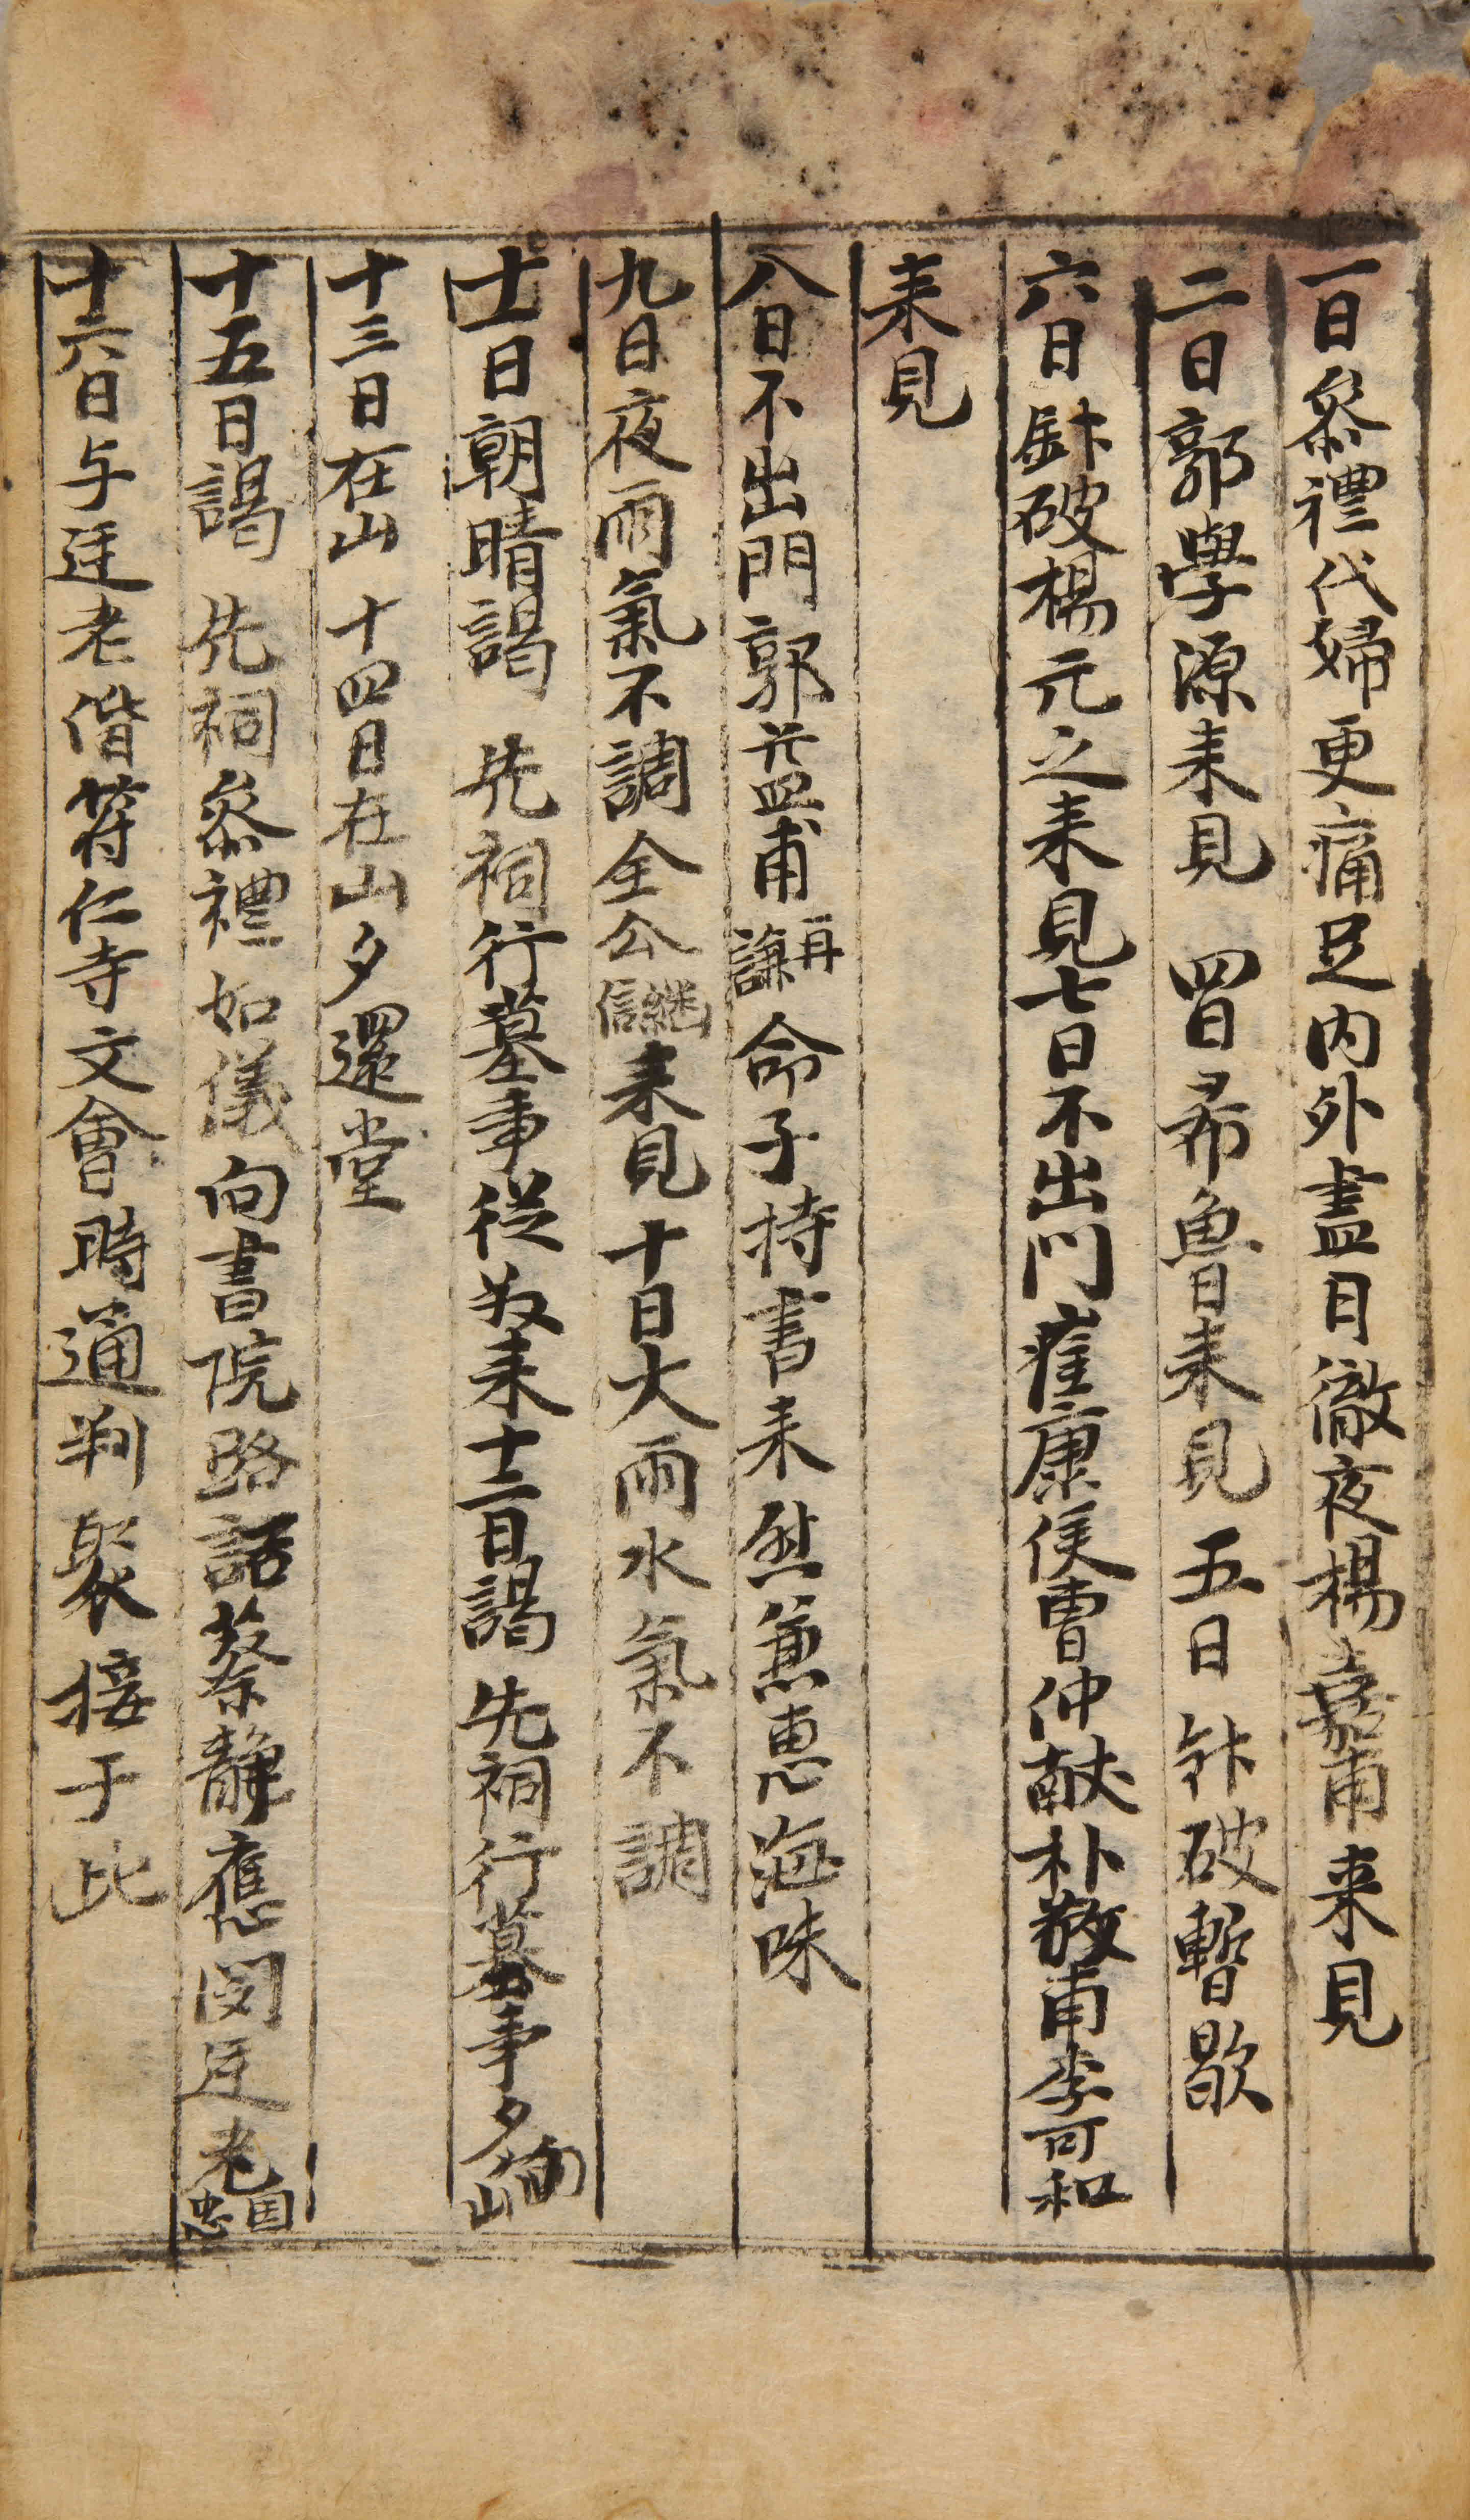 一日叅禮代婦更痛足內外盡日徹夜楊嘉甫来見
二日郭學源来見 四日希魯来見 五日針破暫歇
六日針破楊元之来見七日不出門崔康侯曹仲献朴敬甫李可和
来見
八日不出門郭益甫再謙命子持書来慰兼惠海味
九日夜雨氣不調全公継信来見十日大雨水氣不調
十一日朝晴謁 先祠行墓事從叔来十二日謁 先祠行墓事夕向山
十三日在山 十四日在山夕還堂
十五日謁 先祠叅禮如儀向書院路話蔡靜應閔廷老国忠
十六日与廷老偕符仁寺文會時通判聚接于此